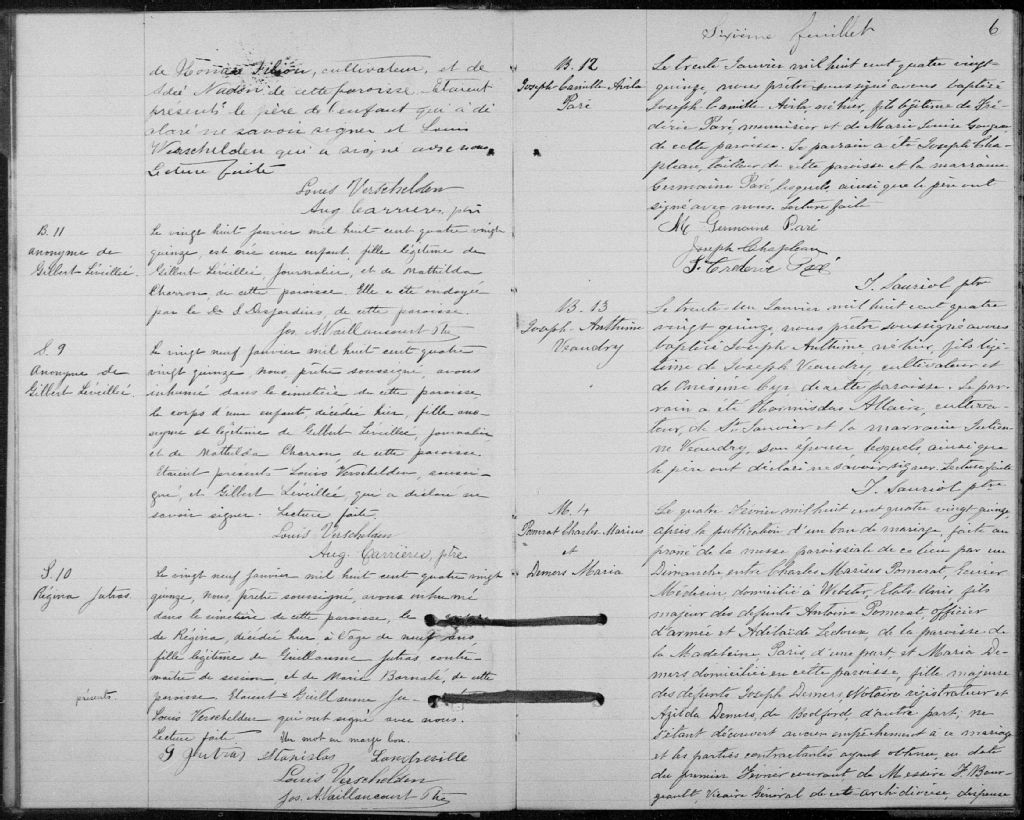 de Honoré Filion, cultivateur, et de
Nadon de cette paroisse. Etaient
présents le père de l'enfant qui a dé
claré ne savoir signer et Louis
Verschelden qui a signé avec nous.
Lecture faite
Louis Verschelden
Aug. Carrières, ptre
B. 11
Anonyme de
Gilbert Léveillée.
Le vingt huit janvier mil huit cent quatre vingt
quinze, est née une enfant, fille légitime de
Gilbert Léveillée, journalier, et de Mathilda
Charron, de cette paroisse. Elle a été ondoyée
par le Dr S Desjardins, de cette paroisse.
Jos. A. Vaillancourt Ptre
S. 9
Anonyme de
Gilbert Léveillée.
Le vingt neuf janvier mil huit cent quatre
vingt quinze, nous, prêtre soussigné, avons
inhumé dans le cimetière de cette paroisse
le corps d'une enfant, décédée hier, fille ano-
nyme et légitime de Gilbert Léveillée, journalier
et de Mathilda Charron, de cette paroisse.
Etaient présents Louis Verschelden, soussi-
gné, et Gilbert Léveillée, qui a déclaré ne
savoir signer. Lecture faite.
Louis Verschelden
Aug. Carrières, ptre
S. 10
Régina Jutras.
Le vingt neuf janvier mil huit cent quatre vingt
quinze, Nous, prêtre soussigné, avons inhumé
dans le cimetière de cette paroisse, le
de Régina, décédée hier, à l'âge de neuf ans,
fille légitime de Guillaume Jutras contre-
maître de section, et de Marie de cette
présents.
paroisse. Etaient Guillaume Ju-
Louis Verschelden qui ont signé avec nous.
Lecture faite. Un mot en marge bon.
G Jutras Stanislas
Louis Verschelden
Jos. A. Vaillancourt Ptre
Sixième feuillet
6
B. 12
Joseph Camille Avila
Paré
Le trente Janvier mil huit cent quatre vingt-
quinze, nous prêtre soussigné avons baptisé
Joseph Camille Avila, né hier, fils légitime de Fré-
déric Paré menuisier et de Marie Louise
de cette paroisse. Le parrain a été Joseph Cha-
pleau, tailleur, de cette paroisse et la marraine
Germaine Paré, lesquels, ainsi que le père ont
signé avec nous. Lecture faite
M. Germaine Paré
Joseph Chapleau
Paré
J. Lauriol ptre
B. 13
Joseph Anthime
Vaudry
Le trente-un Janvier mil huit cent quatre
vingt quinze, nous prêtre soussigné avons
baptisé Joseph Anthime né hier, fils légi-
time de Joseph Vaudry cultivateur et
de Onésime Cyr, de cette paroisse. Le par-
rain a été Hormisdas Allaire, cultiva-
teur, de St Janvier et la marraine
Vaudry, son épouse lesquels, ainsi que
le père ont déclaré ne savoir signer. Lecture faite
J. Lauriol ptre
M. 4
Pomerat Charles Marius
et
Demers Maria
Le quatre Février mil huit cent quatre vingt quinze
après la publication d'un ban de mariage faite au
prône de la messe paroissiale de ce lieu par un
Dimanche, entre Charles Marius Pomerat,
Médecin, domicilié à Webster, Etats Unis, fils
majeur des défunts Antoine Pomerat, officier
d'armée et Adélaïde Ledoux, de la paroisse de
la Madeleine Paris, d'une part, et Maria De-
mers domiciliée en cette paroisse, fille majeure
des défunts Joseph Demers Notaire registrateur et
Azilda Demers, de Bedford, d'autre part; ne
s'étant découvert aucun empêchement à ce mariage
et les parties contractantes ayant obtenu, en date
du premier Février courant, de Messire F. Bour-
geault, Vicaire Général de cet archidiocèse, dispense